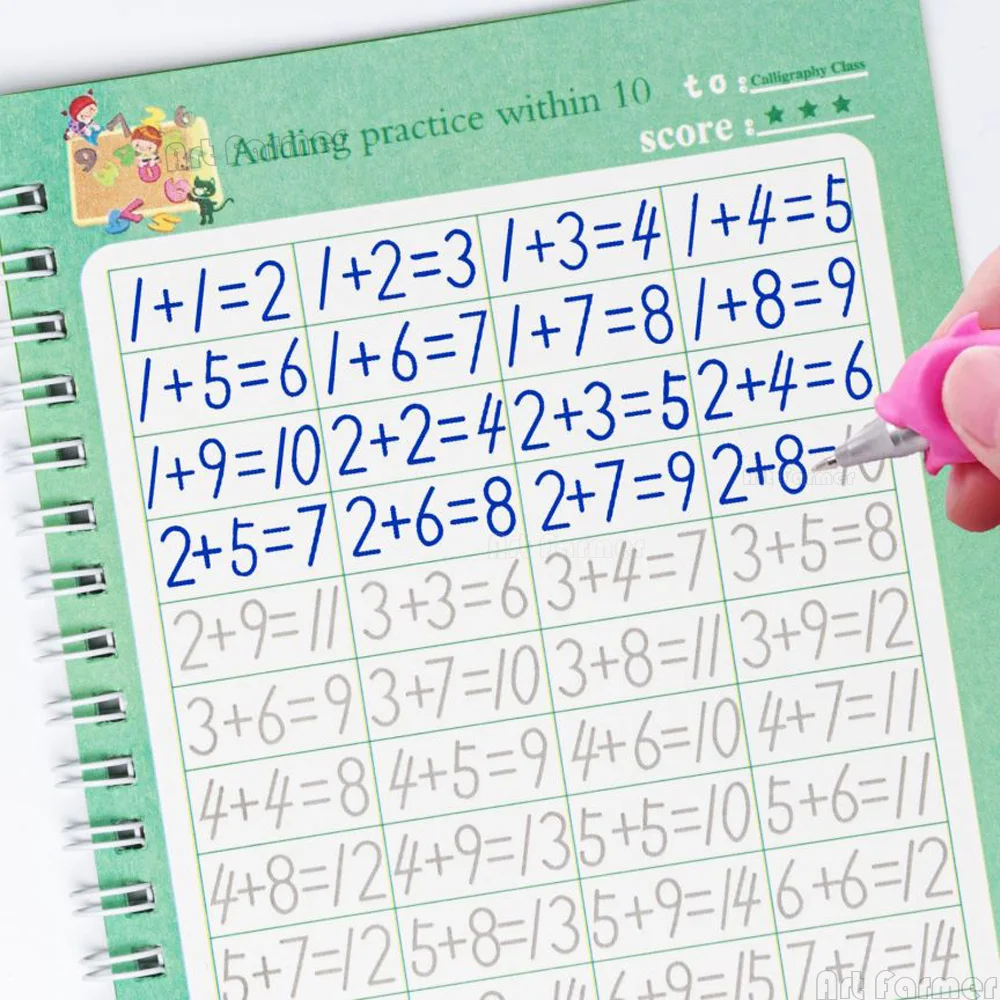 Adding practice within 10
to: Calligraphy Class
score: ★ ★ ★
1+1=2 1+2=3 1+3=4 1+4=5
1+5=6 1+6=7 1+7=8 1+8=9
1+9=10 2+2=4 2+3=5 2+4=6
2+5=7 2+6=8 2+7=9 2+8=10
2+9=11 3+3=6 3+4=7 3+5=8
3+6=9 3+7=10 3+8=11 3+9=12
4+4=8 4+5=9 4+6=10 4+7=11
4+8=12 4+9=13 5+5=10 5+6=11
5+7=12 5+8=13 5+9=14 6+6=12
6+9=15 7+7=14
Art Farmer
Art Farmer
Art Farmer
Art Farmer